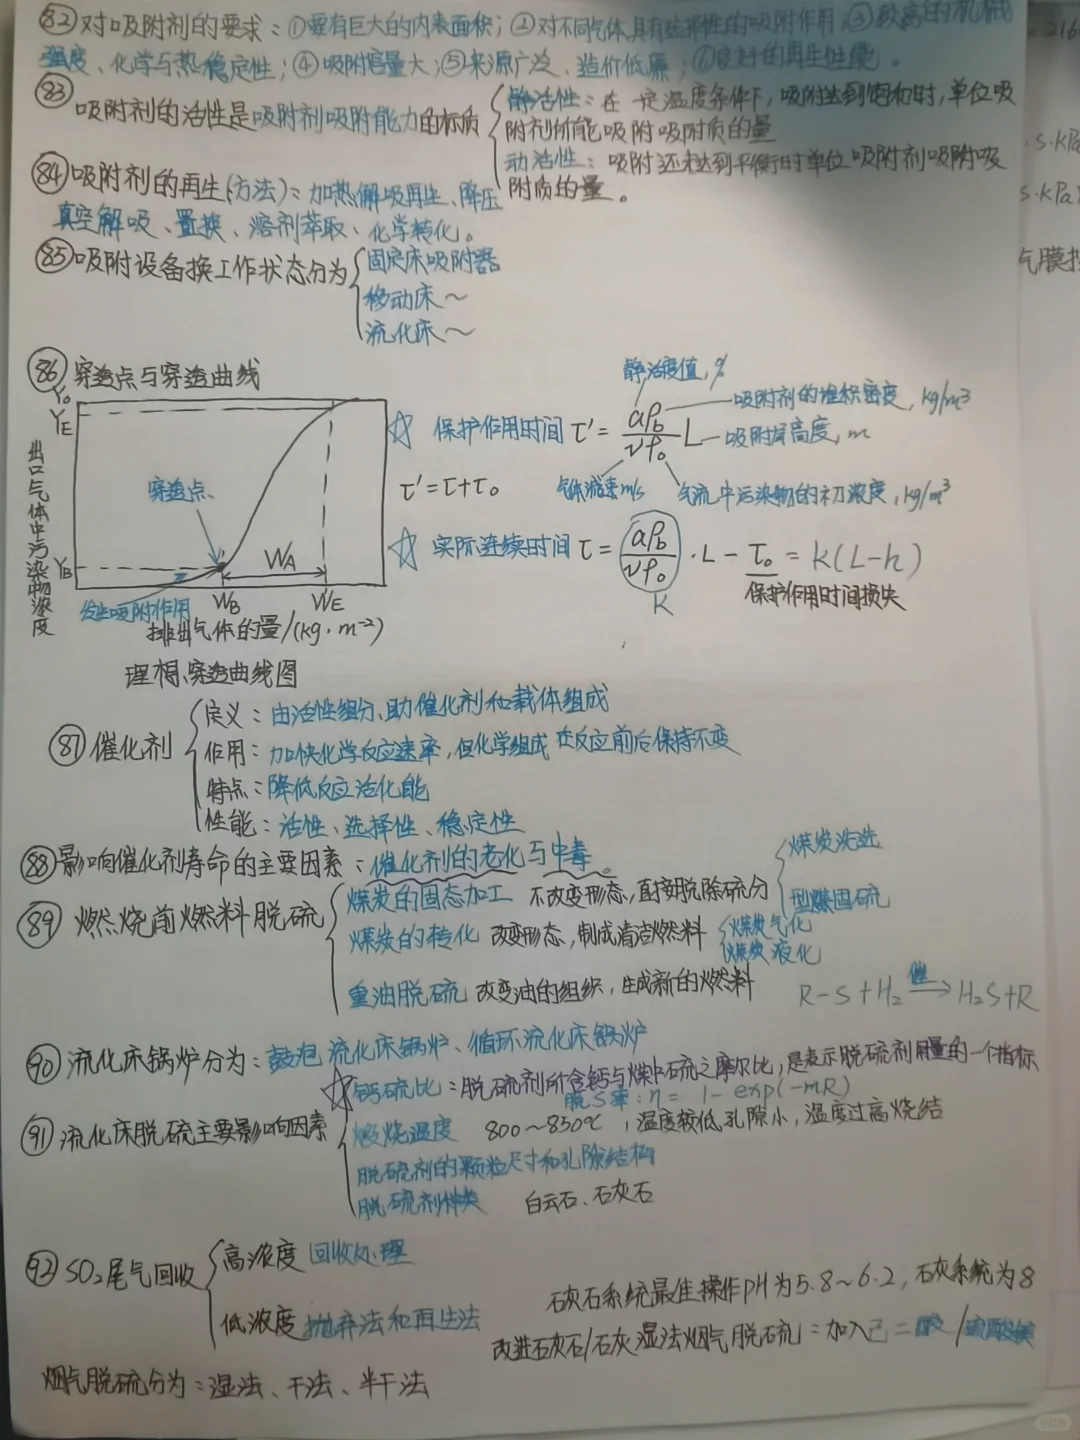 ㉘㉒对吸附剂的要求：①要有巨大的内表面积；②对不同气体具有选择性的吸附作用；③较高的机械
强度、化学与热稳定性；④吸附容量大；⑤来源广泛、造价低廉；⑥良好的再生性能。
83 吸附剂的活性是吸附剂吸附能力的标质
静活性：在一定温度条件下，吸附达到饱和时，单位吸
附剂所能吸附吸附质的量
动活性：吸附还未达到平衡时单位吸附剂吸附吸
附质的量。
84 吸附剂的再生(方法)：加热解吸再生、降压
真空解吸、置换、溶剂萃取、化学转化。
85 吸附设备换工作状态分为
固定床吸附器
移动床～
流化床～
86 穿透点与穿透曲线
Y₀
Y_E
Y_B
出口气体中污染物浓度
穿透点
发生吸附作用
W_A
W_B
W_E
排出气体的量/(kg·m⁻²)
理想穿透曲线图
静活度值,%
☆ 保护作用时间 τ' = aρb/vρ₀ L
吸附剂的堆积密度, kg/m³
吸附层高度, m
气体流速m/s
气流中污染物的初浓度, kg/m³
τ'=τ+τ₀
☆ 实际连续时间 τ = aρb/vρ₀ · L - τ₀ = K(L-h)
K
保护作用时间损失
87 催化剂
定义：由活性组分、助催化剂和载体组成
作用：加快化学反应速率，但化学组成在反应前后保持不变
特点：降低反应活化能
性能：活性、选择性、稳定性
88 影响催化剂寿命的主要因素：催化剂的老化与中毒。
89 燃烧前燃料脱硫
煤炭的固态加工 不改变形态，直接脱除硫分
煤炭洗选
型煤固硫
煤炭的转化 改变形态，制成清洁燃料
煤炭气化
煤炭液化
重油脱硫 改变油的组织，生成新的燃料
R-S+H₂ 催→ H₂S+R
90 流化床锅炉分为：鼓泡流化床锅炉、循环流化床锅炉
91 流化床脱硫主要影响因素
☆钙硫比：脱硫剂所含钙与煤中硫之摩尔比，是表示脱硫剂用量的一个指标
脱S率：η= 1-exp(-mR)
煅烧温度 800～850℃，温度较低孔隙小，温度过高烧结
脱硫剂的颗粒尺寸和孔隙结构
脱硫剂种类 白云石、石灰石
92 SO₂尾气回收
高浓度 回收处理
低浓度 抛弃法和再生法
石灰石系统最佳操作pH为5.8～6.2，石灰系统为8
改进石灰石/石灰湿法烟气脱硫：加入己二酸/硫酸镁
烟气脱硫分为：湿法、干法、半干法
216
s.kPa
s.kPa
气膜控
小红书